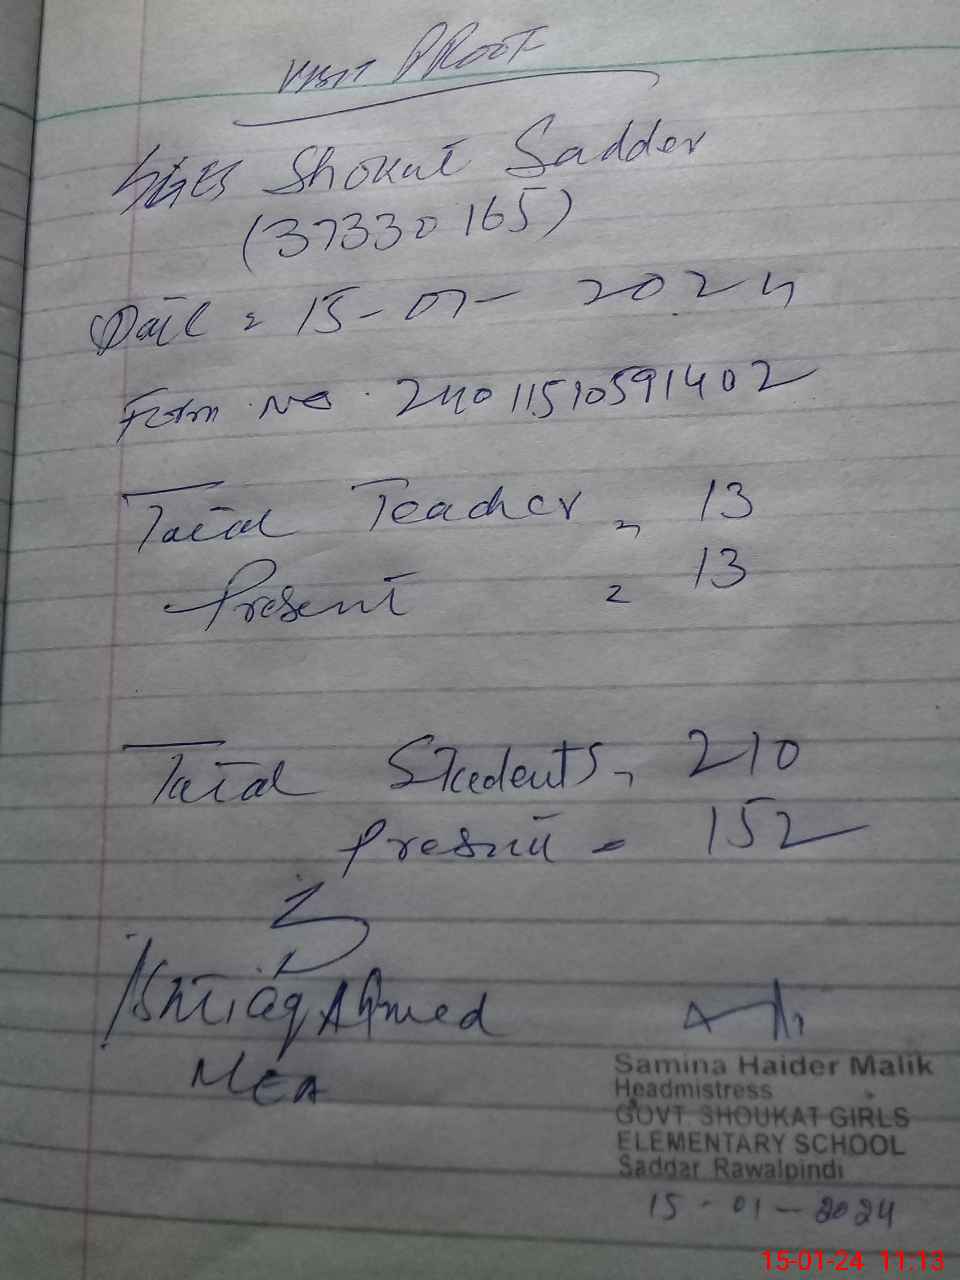 Visit PROOF
GGES Shokat Sadder
(37330165)
Date = 15-01-2024
Form No. 24011510591402
Total Teacher = 13
Present = 13
Total Students = 210
Present = 152
Ishtiaq Ahmed
MEA
Samina Haider Malik
Headmistress
GOVT. SHOUKAT GIRLS
ELEMENTARY SCHOOL
Saddar Rawalpindi
15-01-2024
15-01-24 11:13